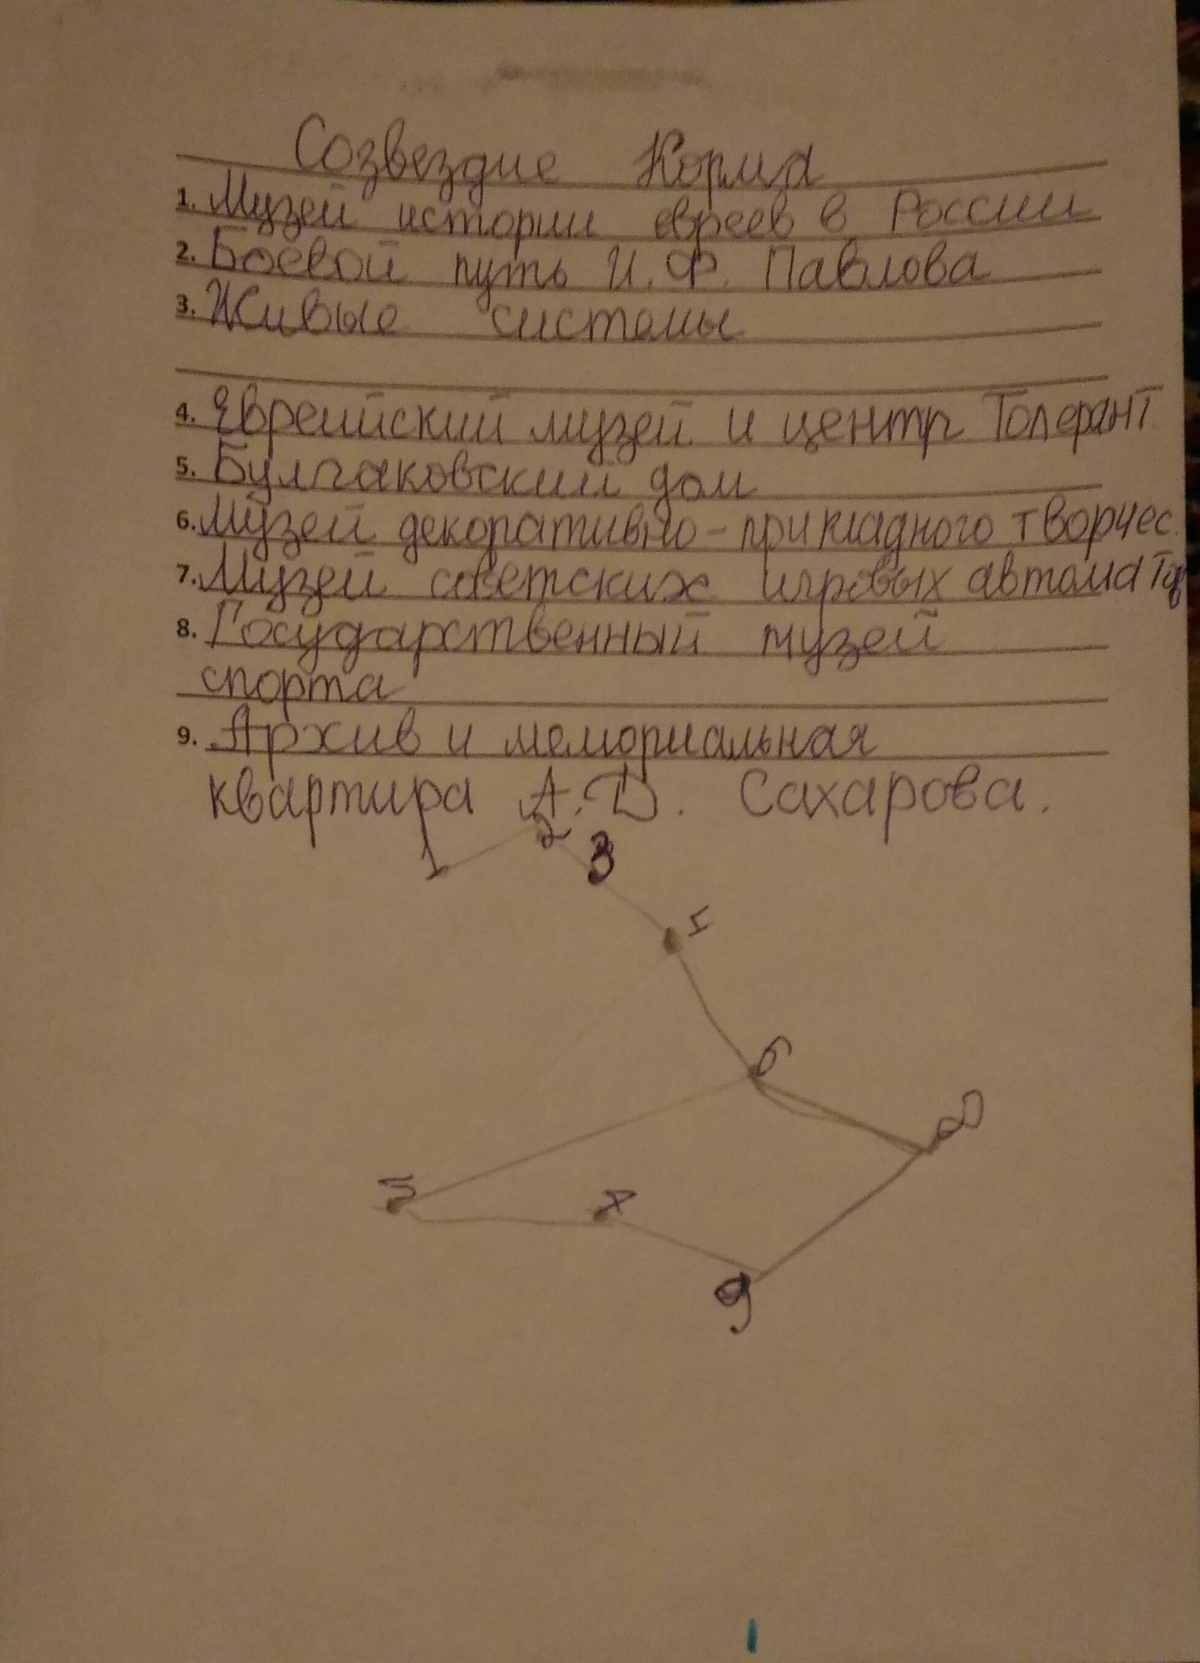 Созвездие Корма
1. Музей истории евреев в России
2. Боевой путь И. Ф. Павлова
3. Живые системы
4. Еврейский музей и центр Толерант.
5. Булгаковский дом
6. Музей декоративно-прикладного творчес.
7. Музей советских игровых автоматов
8. Государственный музей
спорта
9. Архив и мемориальная
квартира А. Д. Сахарова.
1 2
3
4
6
8
5 7
9